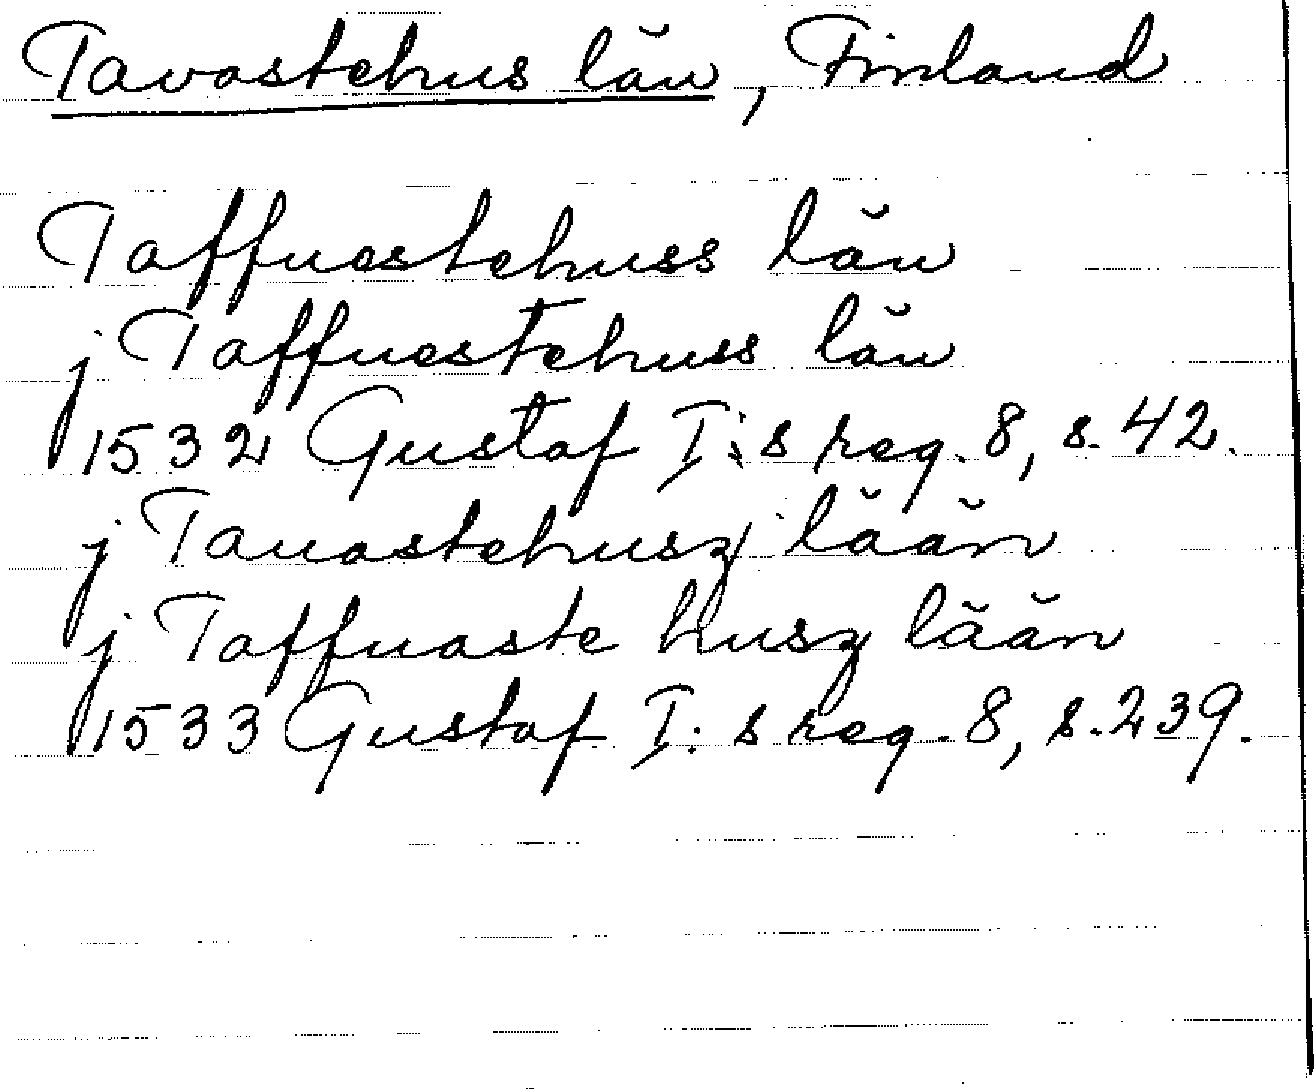 Tavastehus län, Finland
Taffuestehuss län
j Taffuestehuss län
1532 Gustaf I:s reg. 8, s. 42.
j Tauastehusz lään
j Taffuaste husz lään
1533 Gustaf I:s reg. 8, s. 239.